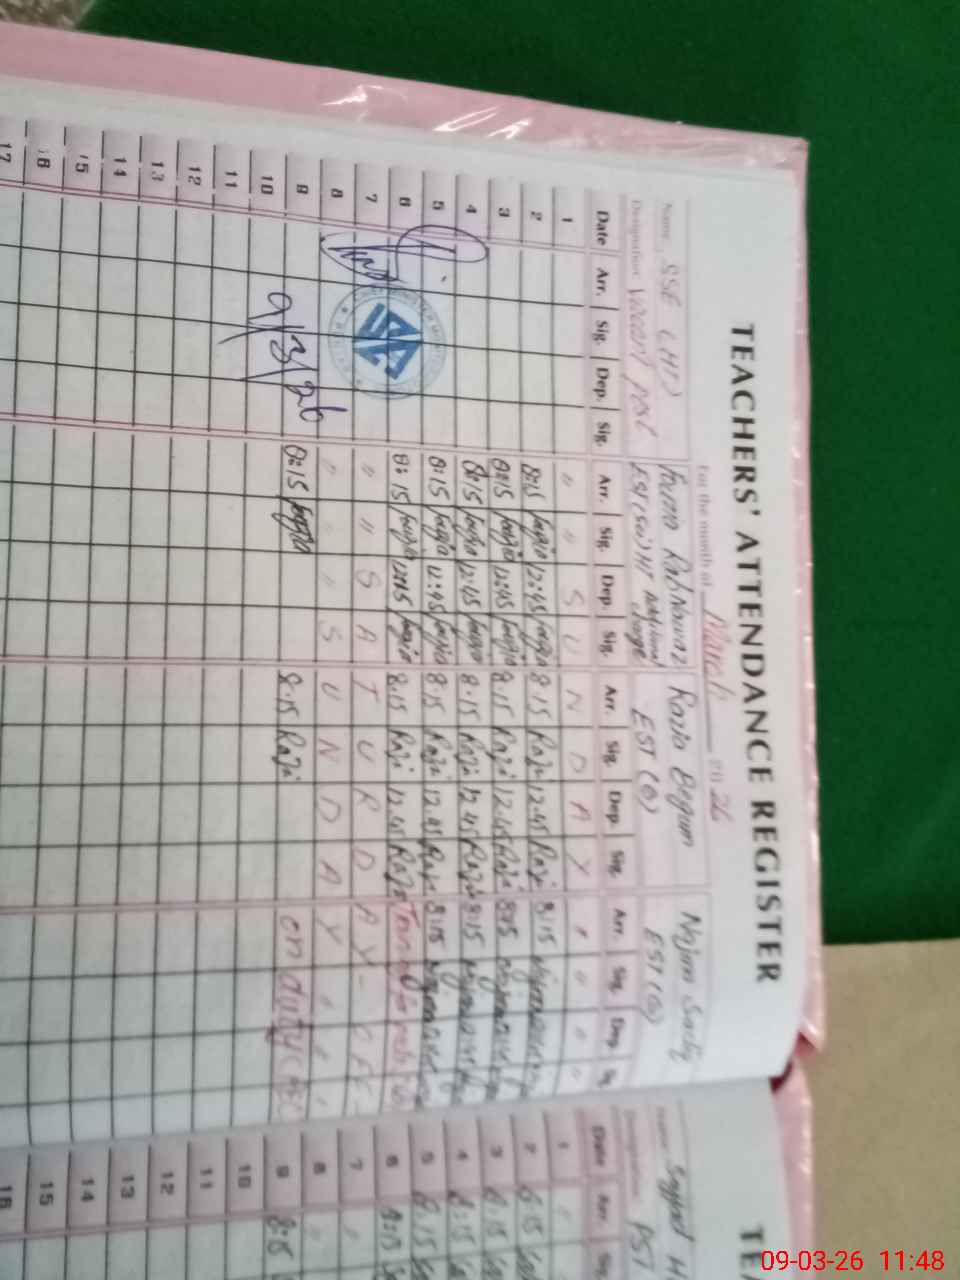 TEACHERS' ATTENDANCE REGISTER
For the month of March 2026
Name SSE (HT) Fouzia Rab Nawaz Razia Begum Najma Sadiq
Designation Vacant Post EST (Sci) HT Additional charge EST (G) EST (G)
Date Arr. Sig. Dep. Sig. Arr. Sig. Dep. Sig. Arr. Sig. Dep. Sig. Arr. Sig. Dep. Sig.
1 " " S U N D A Y " " " "
2 8:15 fouzia 12:45 fouzia 8.15 Razi 12.45 Razi 8:15
3 8:15 fouzia 12:45 fouzia 8.15 Razi 12.45 Razi
4 8:15 fouzia 12:45 fouzia 8.15 Razi 12.45 Razi 8:15
5 8:15 fouzia 12:45 fouzia 8.15 Razi 12.45 Razi 8:15
6 8:15 fouzia 12:45 fouzia 8.15 Razi 12.45 Razi
7 " " S A T U R D A Y - O F F -
8 " " " S U N D A Y " " "
9 8:15 fouzia 8.15 Razi on duty
10
11
12
13
14
15
16
17
9/3/26
TEA
Name Sajjad H
Designation PST
Date Arr. Sig.
1 "
2 8:15
3 8:15
4 8:15
5 8:15
6 8:15
7 "
8 "
9 8:15
10
11
12
13
14
15
16
09-03-26 11:48